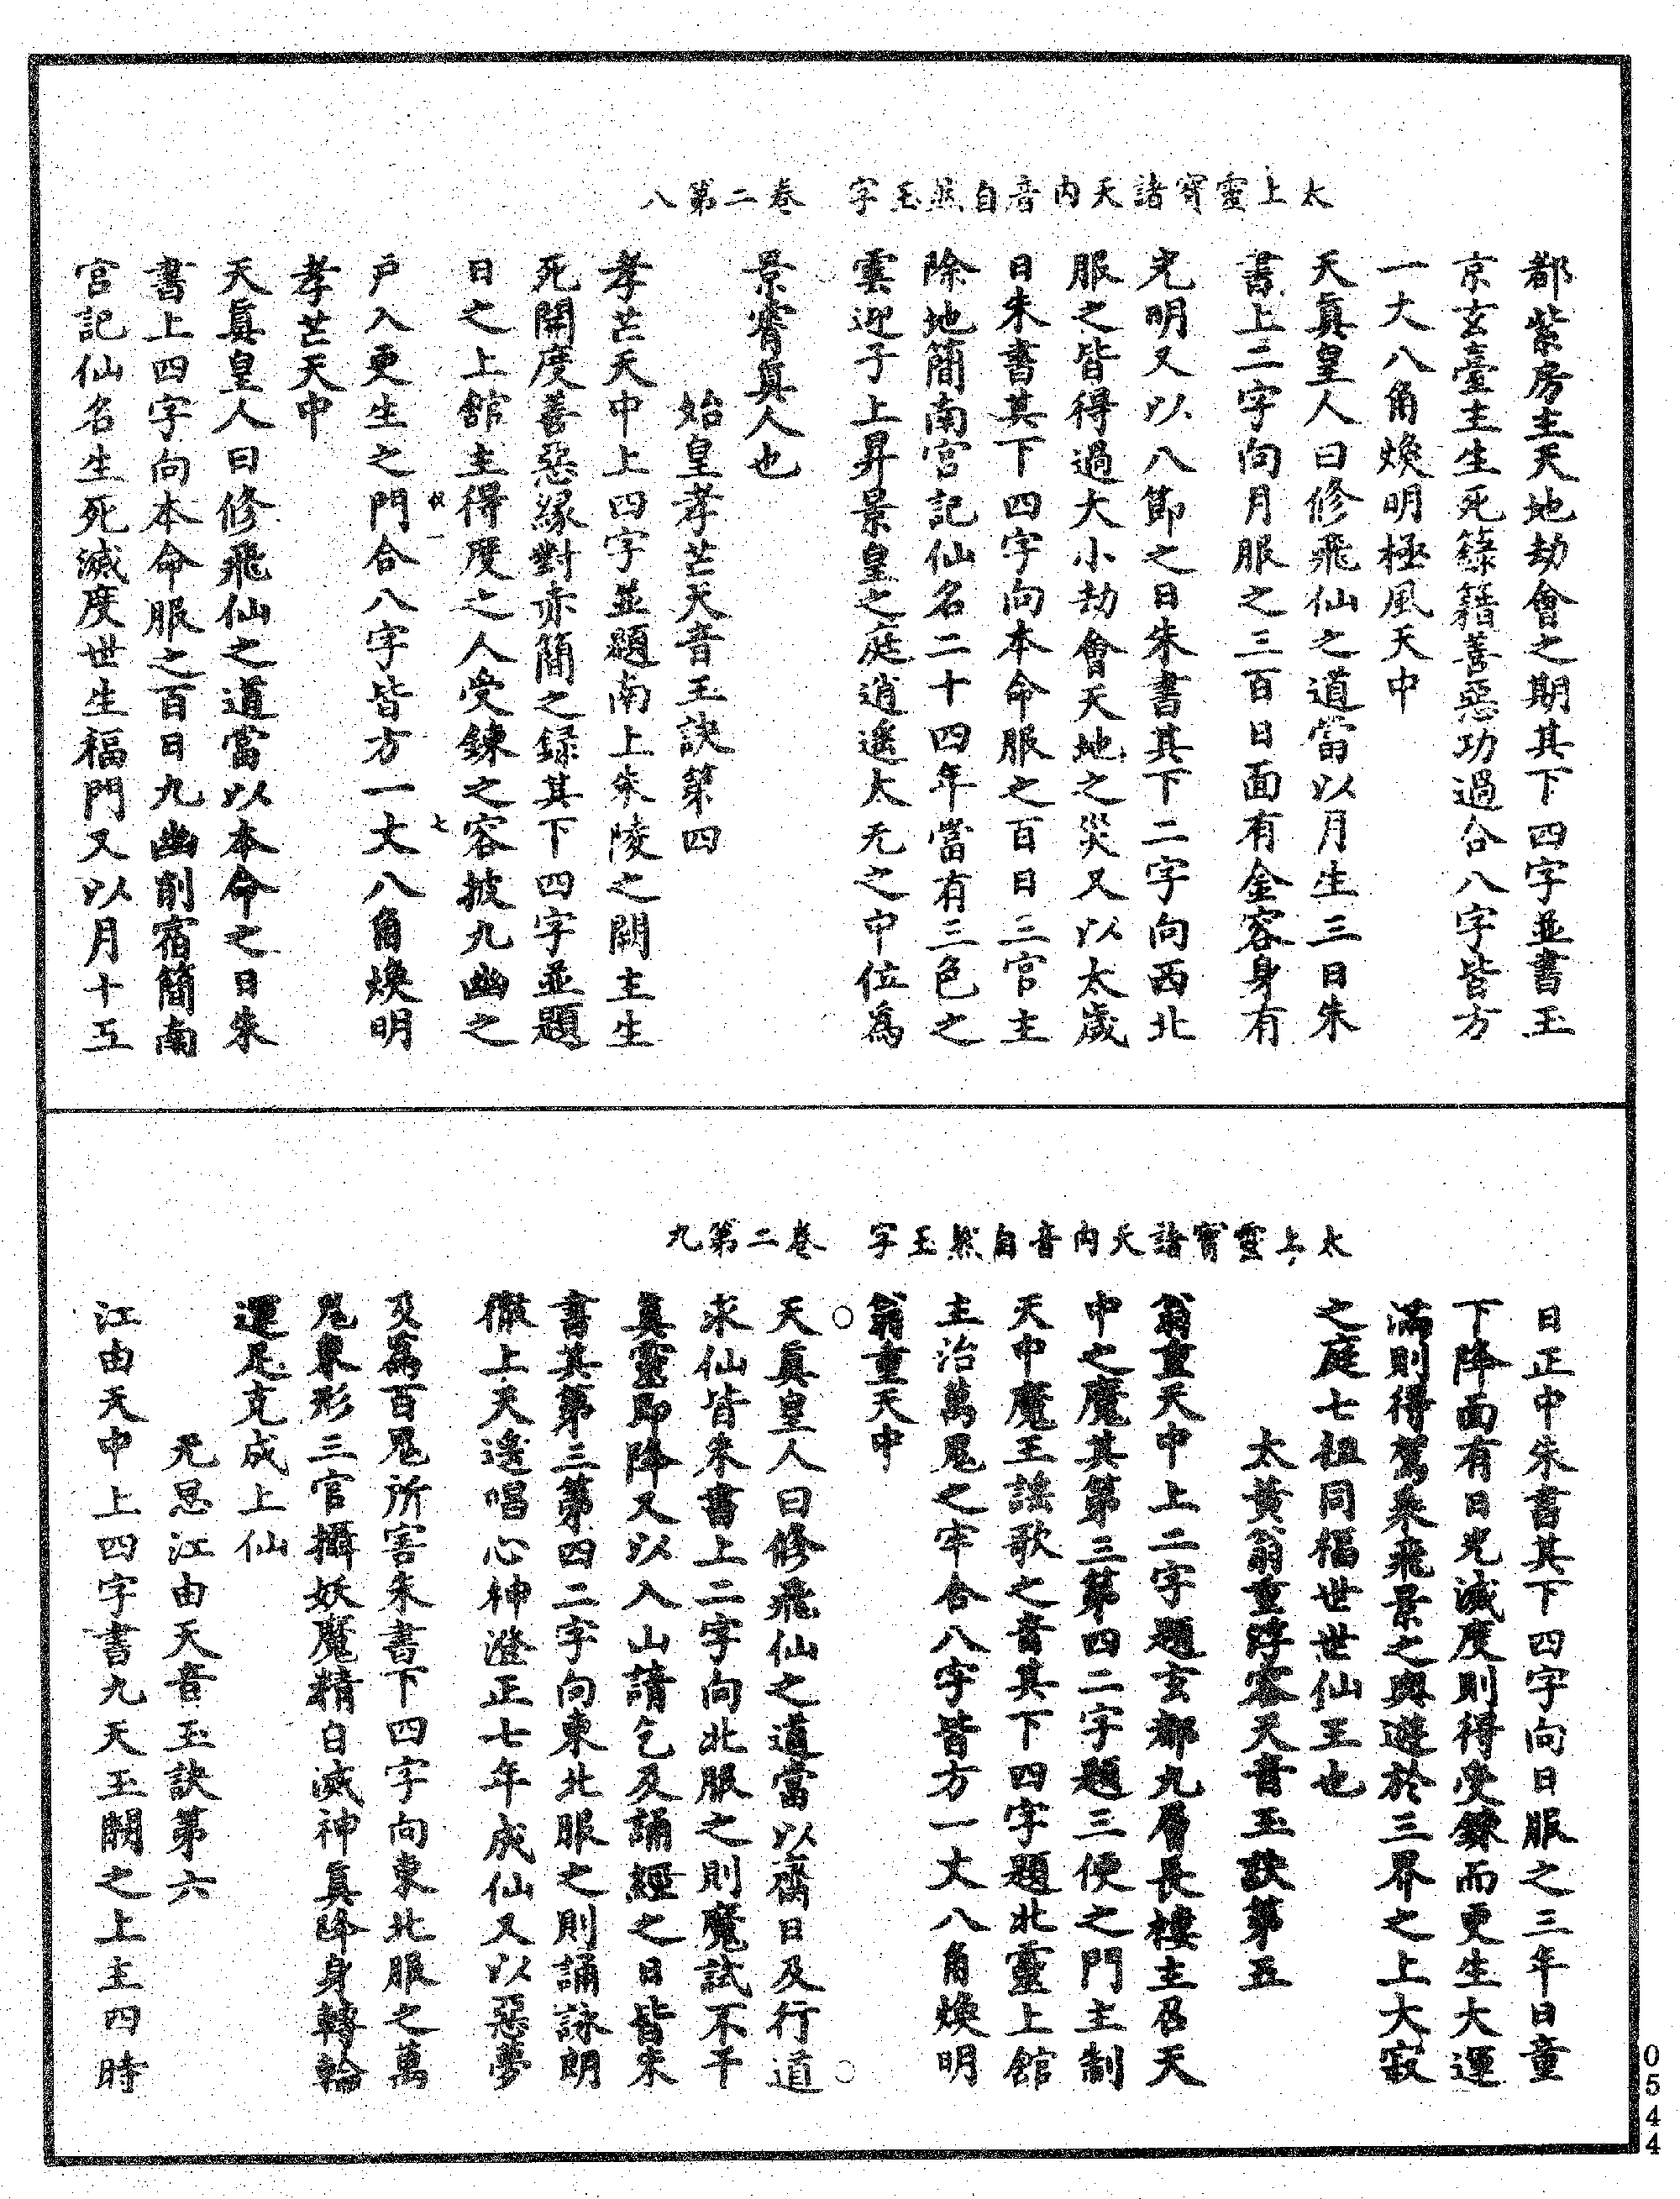 太上靈寶諸天內音自然玉字　卷二第八
都紫房主天地劫會之期其下四字並書玉
京玄臺主生死籙籍善惡功過合八字皆方
一丈八角煥明極風天中
天真皇人曰修飛仙之道當以月生三日朱
書上二字向月服之三百日面有金容身有
光明又以八節之日朱書其下二字向西北
服之皆得過大小劫會天地之災又以太歲
日朱書其下四字向本命服之百日三官主
除地簡南宮記仙名二十四年當有三色之
雲迎子上昇景皇之庭逍遙太无之中位為
景霄真人也
始皇孝芒天音玉訣第四
孝芒天中上四字並題南上朱陵之闕主生
死開度善惡緣對赤簡之録其下四字並題
日之上舘主得度之人受鍊之容披九幽之
戶入更生之門合八字皆方一丈八角煥明
孝芒天中
天真皇人曰修飛仙之道當以本命之日朱
書上四字向本命服之百日九幽削宿簡南
宮記仙名生死滅度世生福門又以月十五
太上靈寶諸天內音自然玉字　卷二第九
日正中朱書其下四字向日服之三年日童
下降面有日光滅度則得受鍊而更生大運
滿則得駕乘飛景之輿遊於三界之上大寂
之庭七祖同福世世仙王也
太黃翁重浮容天音玉訣第五
翁重天中上二字題玄都九層長樓主召天
中之魔其第三第四二字題三便之門主制
天中魔王謡歌之音其下四字題北靈上館
主治萬鬼之牢合八字皆方一丈八角煥明
翁重天中
天真皇人曰修飛仙之道當以齋日及行道
求仙皆朱書上二字向北服之則魔試不干
真靈即降又以入山請乞及誦經之日皆朱
書其第三第四二字向東北服之則誦詠朗
徹上天遙唱心神澄正七年成仙又以惡夢
及為百鬼所害朱書下四字向東北服之萬
鬼衆形三官攝妖魔精自滅神真降身轉輪
運足克成上仙
无思江由天音玉訣第六
江由天中上四字書九天玉闕之上主四時
0544